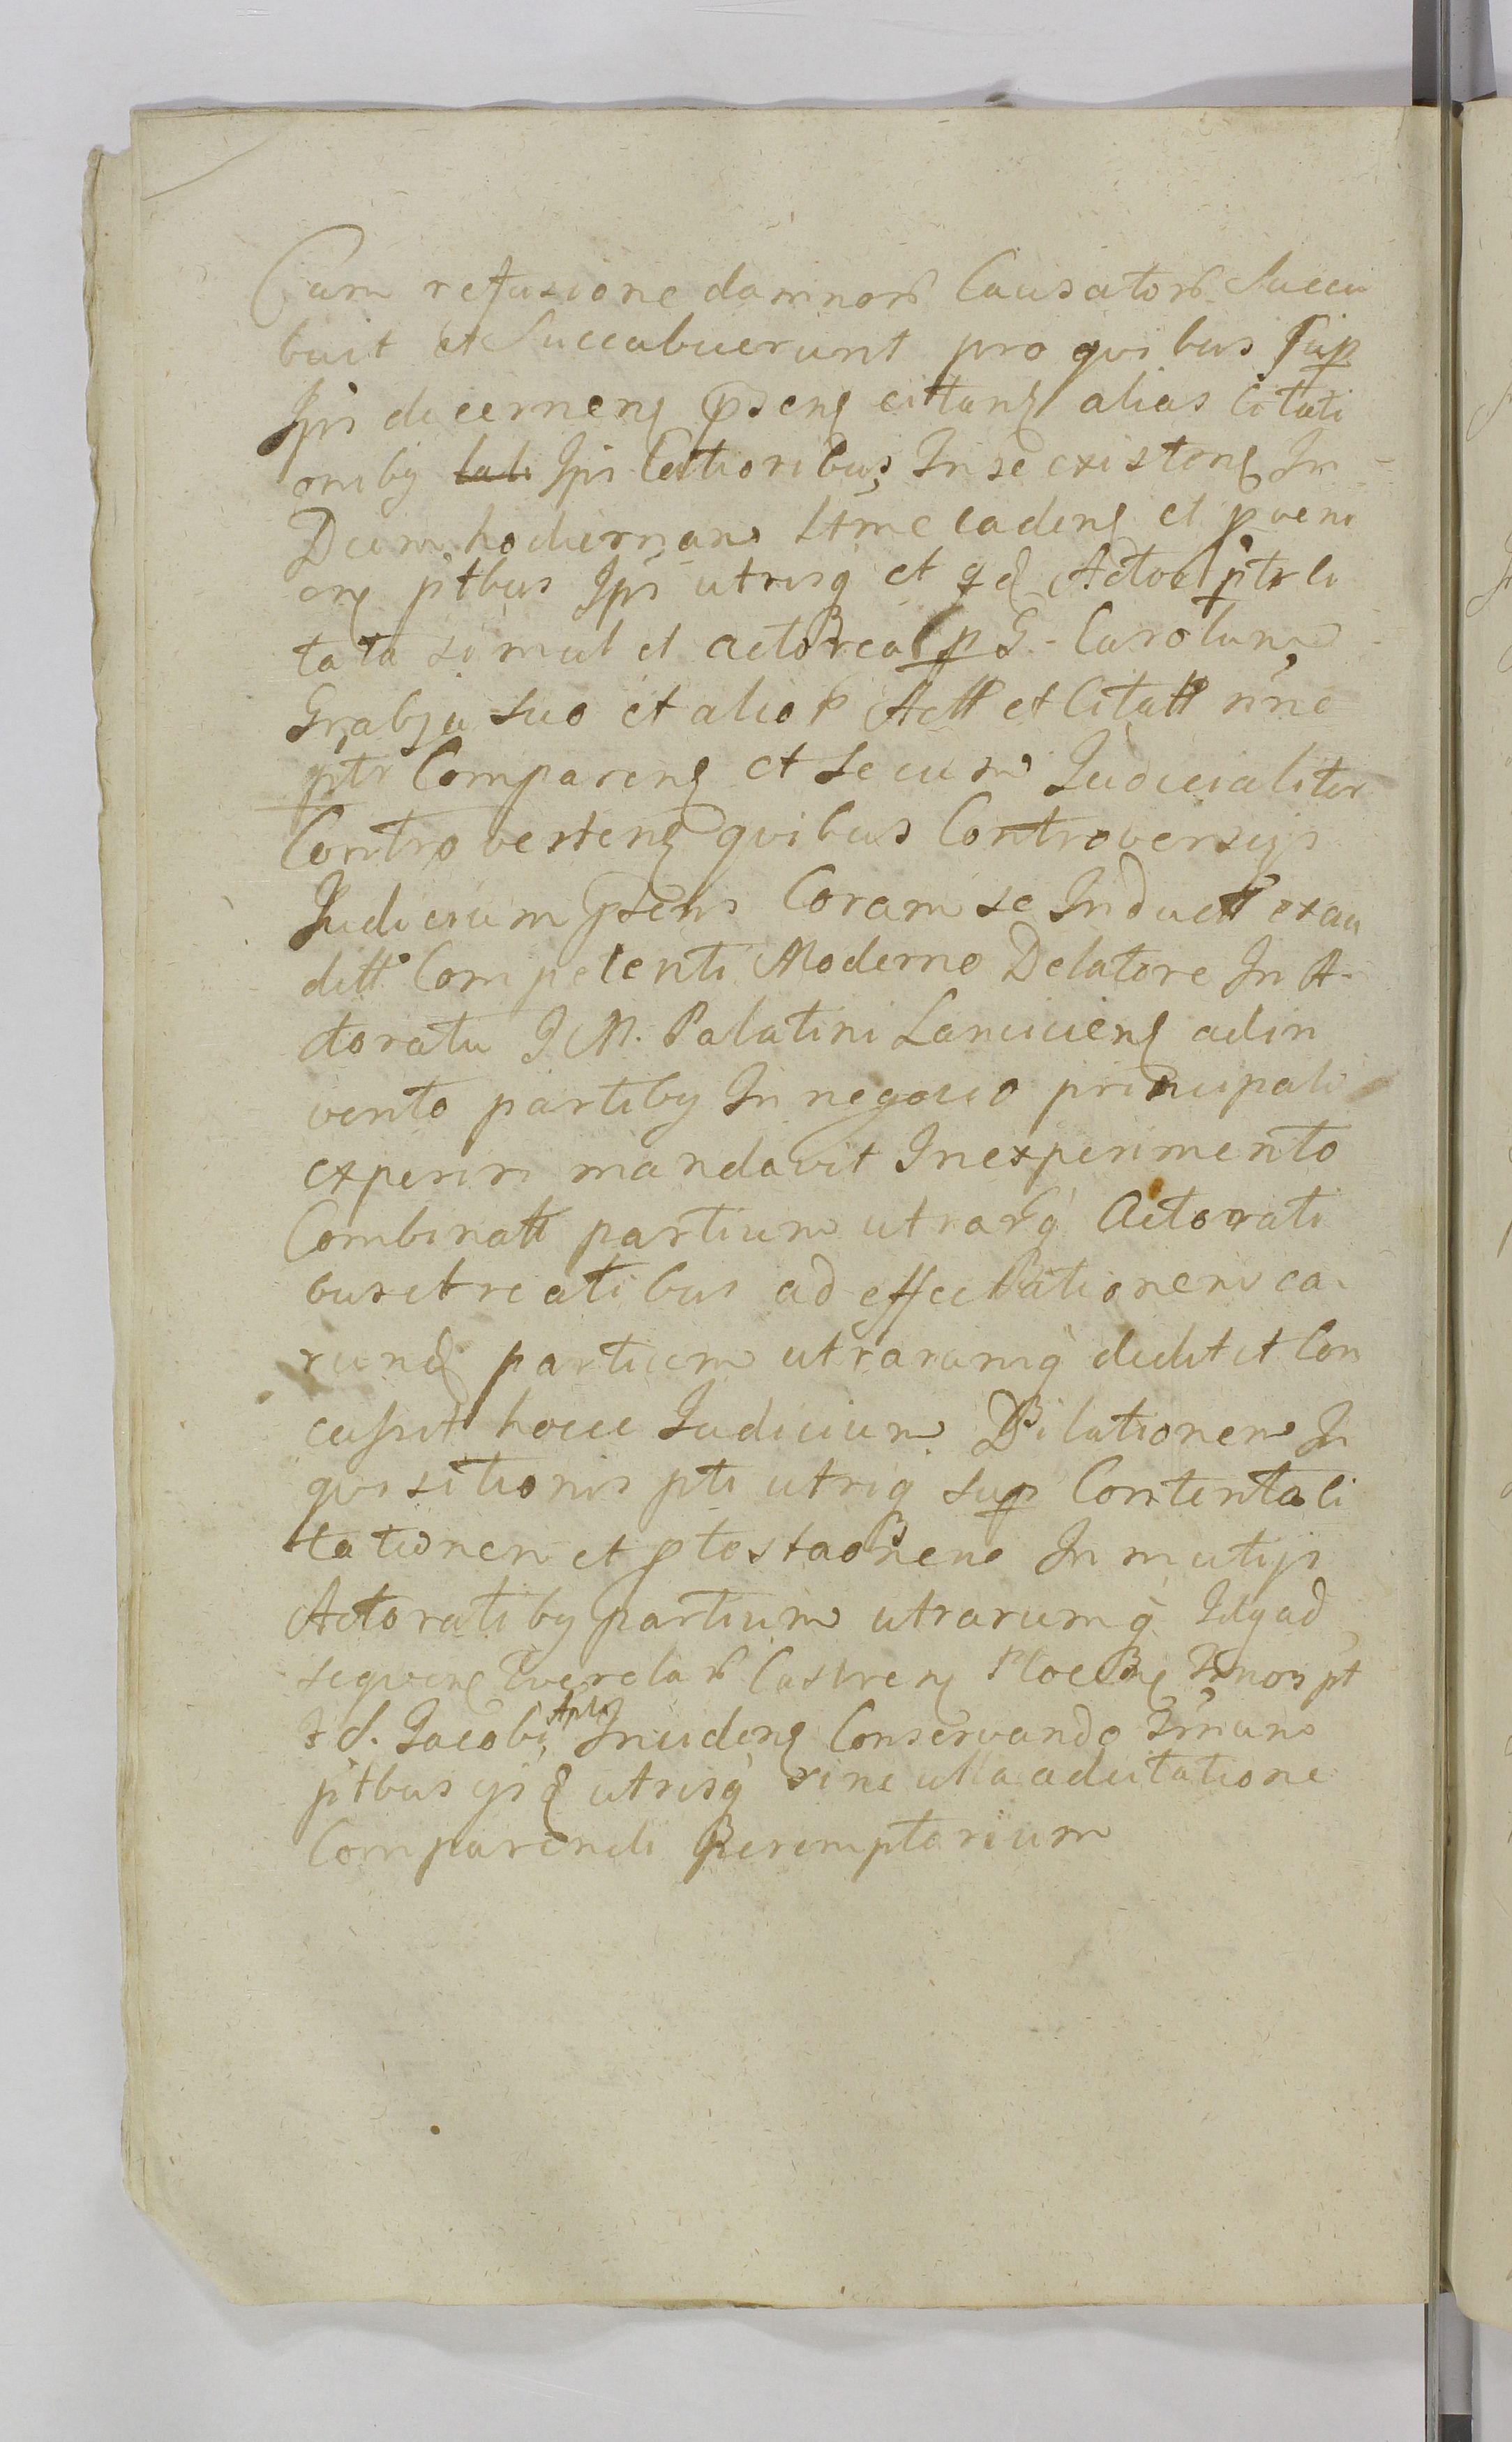 Cum refusione damnor Causator Succu
buit et Succubuerunt pro quibus sup
Ipis decernen psen cittan alias Citati
oniby Ipis Lectioribus In se existen In
Diem hodiernam ltme caden et pveni
en ptbus Ipis utrisq et qd Actoa ptr Ci
tata simul et actorea p G. Carolum
Grabja suo et alior Actt et Citatt nne
ptr Comparen et secum Judicialiter
Controverten quibus Controversijs
Judicium psens Coram se Inductt exau
ditt Competenti Moderno Delatore In A
ctoratu J M. Palatini Lancicien adin
vento partiby In negocio principali
experiri mandavit In experimento
Combinatt partium utrarq Actorati
bus et reatibus ad effectuationem ea
rund partium utrarumq dedit et Con
cessit hocce Judicium Dilationem In
quisitionis pti utriq sup Contenta Ci
tationem et ptestaonem In mutijs
Actoratiby partium utrarumq Idq ad
sequen Querelar Castren Plocen Trnos pt
s S. Jacobi Apli Inciden Conservando Trnum
ptbus ijsd utrisq sine ulla adcitatione
Comparendi Peremptorium